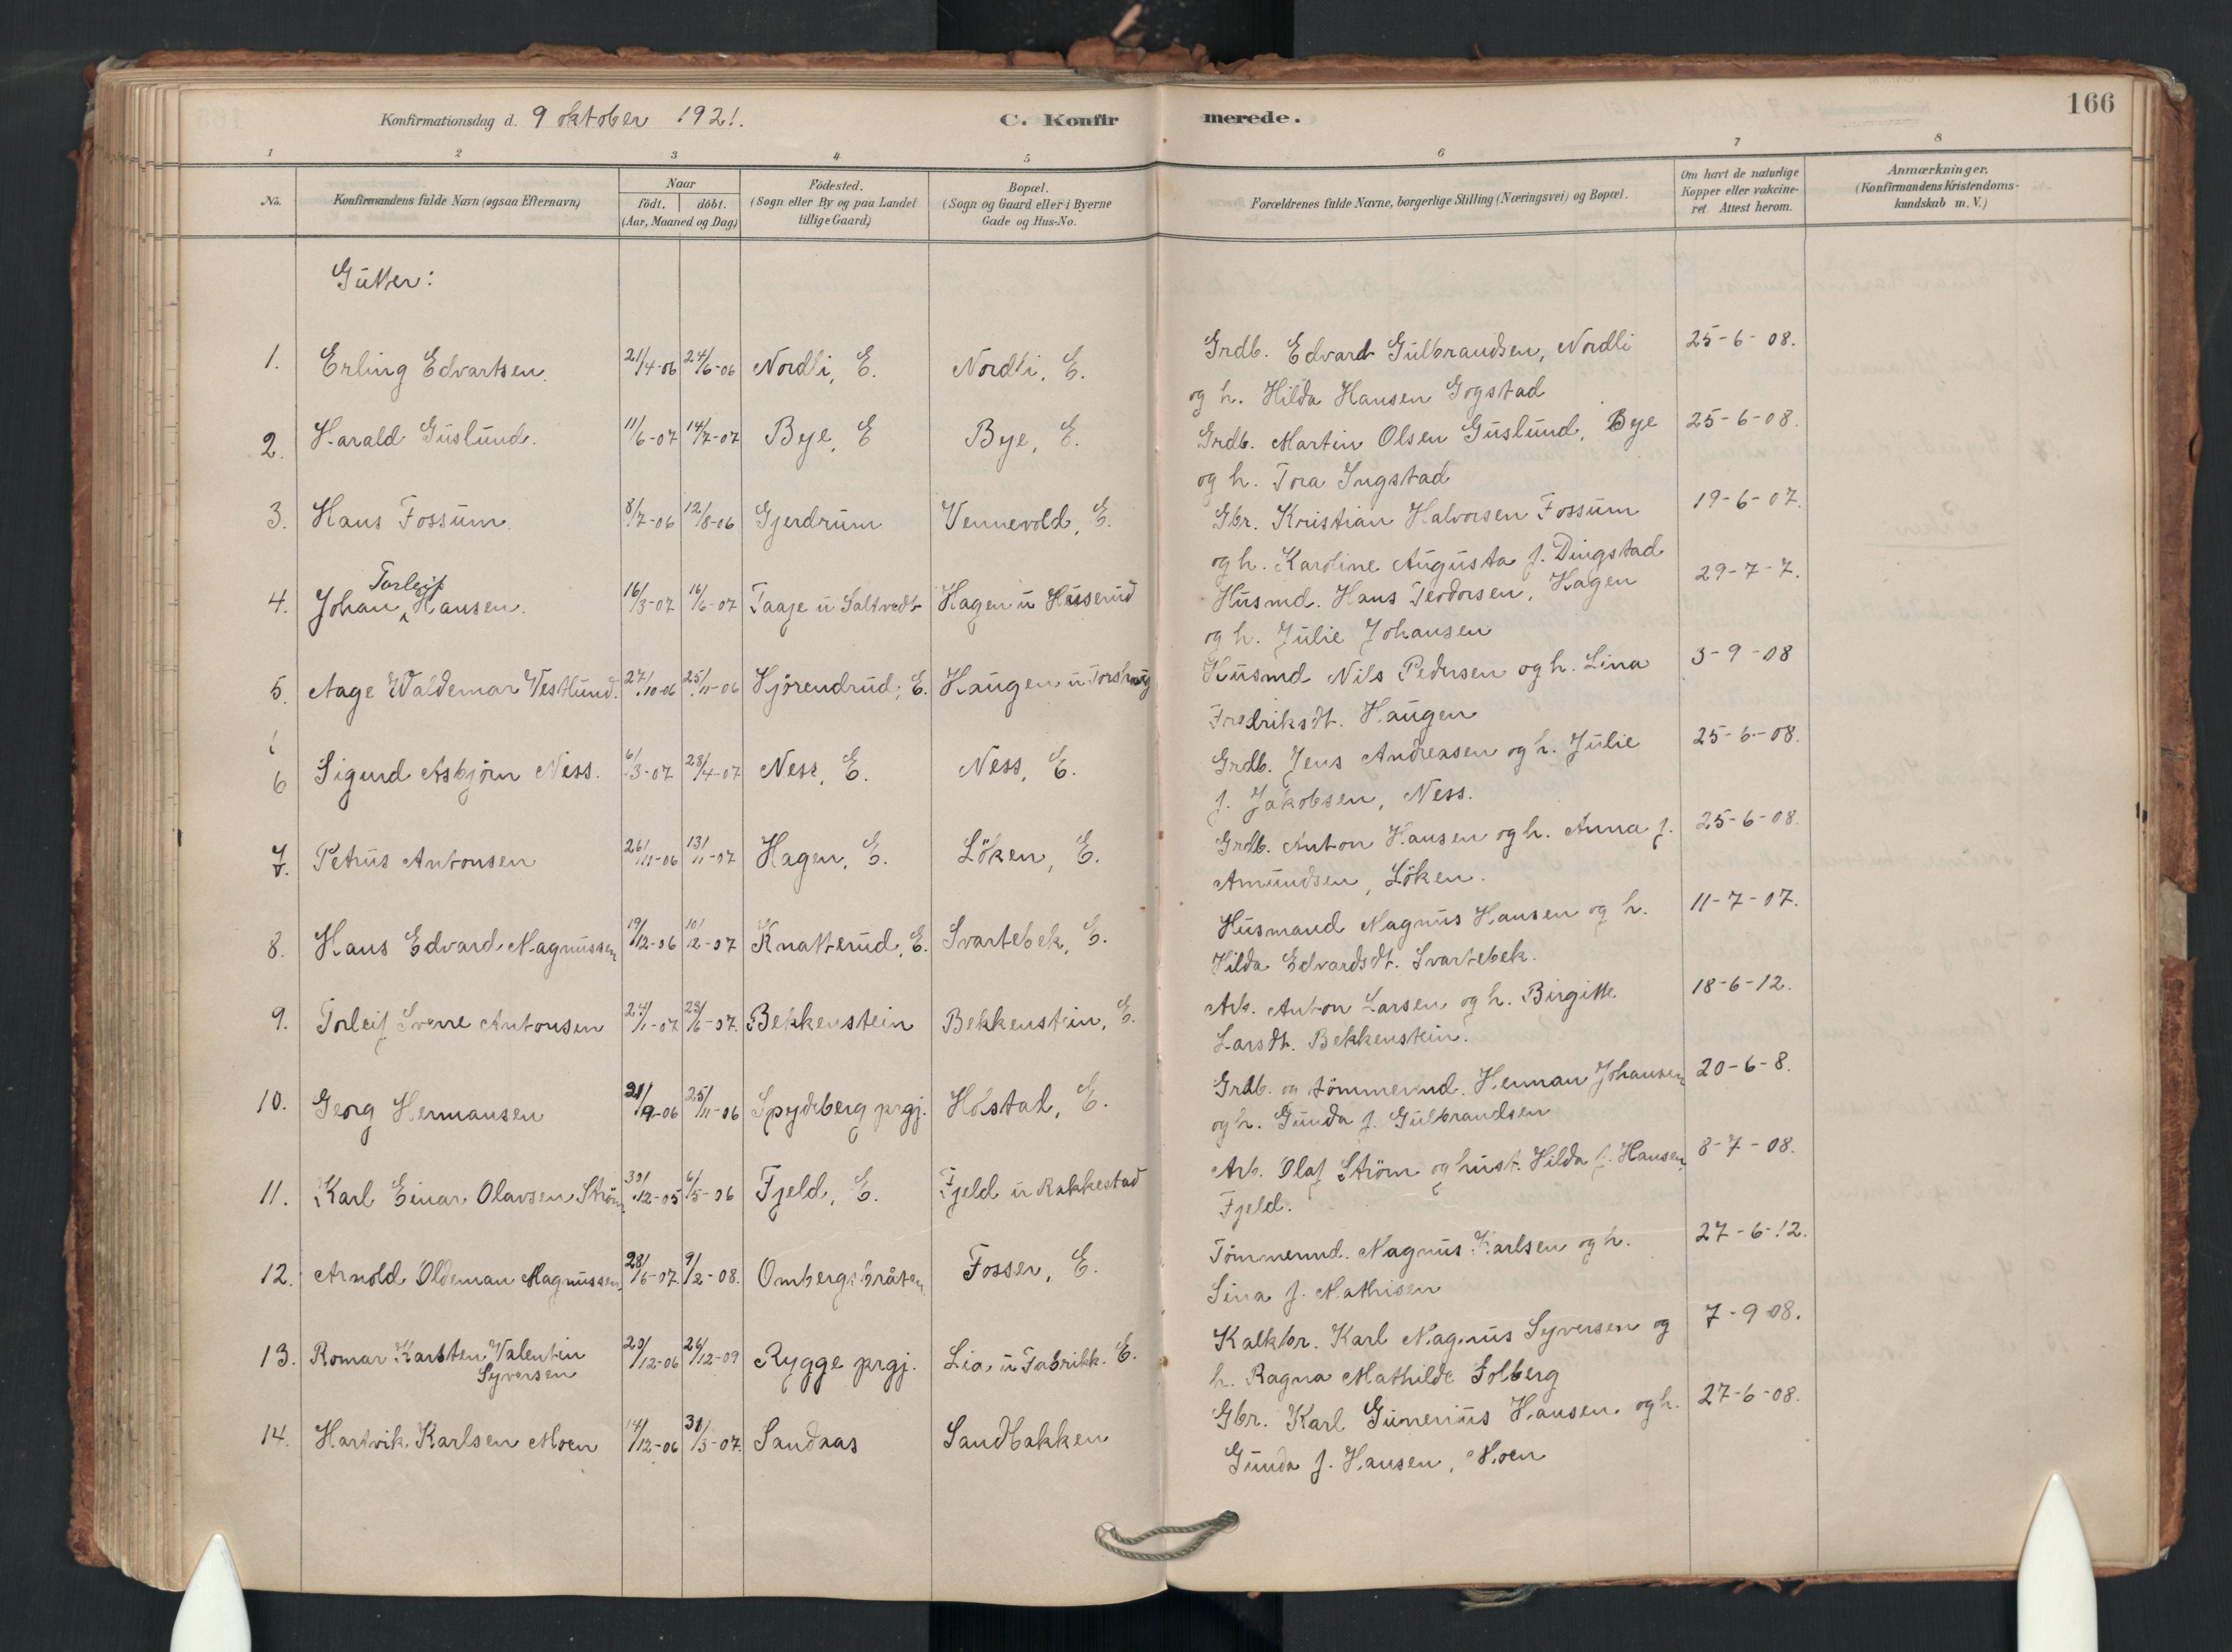 166
Konfirmationsdag d. 9 oktober 1921.
C. Konfirmerede.
1 2 3 4 5 6 7 8
No.
Konfirmandens fulde Navn (ogsaa Efternavn)
Naar
födt. döbt.
(Aar, Maaned og Dag)
Födested.
(Sogn eller By og paa Landet
tillige Gaard)
Bopæl.
(Sogn og Gaard eller i Byerne
Gade og Hus-No.
Forældrenes fulde Navne, borgerlige Stilling (Næringsvei) og Bopæl.
Om havt de naturlige
Kopper eller vakcine-
ret. Attest herom.
Anmærkninger.
(Konfirmandens Kristendoms-
kundskab m. V.)
Gutter:
1. Erling Edvartsen. 21/4-06 24/6-06 Nordli, E. Nordli, E. Grdb. Edvard Gulbrandsen, Nordli 25-6-08.
og h. Hilda Hansen Gogstad
2. Harald Guslund. 11/6-07 14/7-07 Bye, E Bye, E. Grdb. Martin Olsen Guslund, Bye 25-6-08.
og h. Tora Ingstad
3. Hans Fossum. 8/7-06 12/8-06 Gjerdrum Vennevold, E. Gbr. Kristian Halvorsen Fossum 19-6-07.
og h. Karoline Augusta f. Dingstad
4. Johan Torleif Hansen. 16/3-07 16/6-07 Taaje u Saltvedt Hagen u Husserud Husmd. Hans Teodorsen, Hagen 29-7-7.
og h. Julie Johansen
5. Aage Waldemar Vestlund. 27/10-06 25/11-06 Hjörendrud, E. Haugen u Torshaug Husmd Nils Pedersen og h. Lina 3-9-08
Fredriksdt. Haugen
6 Sigurd Asbjörn Ness. 6/3-07 28/4-07 Ness, E. Ness, E. Grdb. Jens Andreasen og h. Julie 25-6-08.
f. Jakobsen, Ness.
7. Petrus Antonsen 26/11-06 13/11-07 Hagen, E. Löken, E. Grdb. Anton Hansen og h. Anna f. 25-6-08.
Amundsen, Löken.
8. Hans Edvard Magnussen 19/12-06 10/12-07 Knatterud, E. Svartebek, E. Husmand Magnus Hansen og h. 11-7-07.
Hilda Edvardsdt. Svartebek.
9. Torleif Sverre Antonsen 24/1-07 23/6-07. Bekkenstein Bekkenstein, E. Arb. Anton Larsen og h. Birgitte 18-6-12.
Larsdt. Bekkenstein.
10. Georg Hermansen 21/9-06 25/11-06 Spydeberg prgj. Holstad, E. Grdb. og tömmermd. Herman Johansen 20-6-8.
og h. Gunda f. Gulbrandsen
11. Karl Einar Olavsen Ström. 30/12-05 6/5-06 Fjeld, E. Fjeld u Rakkestad Arb. Olaf Ström og hust. Hilda f. Hansen, 8-7-08.
Fjeld.
12. Arnold Oldeman Magnussen. 28/6-07 9/2-08. Ombergsbråten Fosser, E. Tömmermd. Magnus Karlsen og h. 27-6-12.
Lina f. Mathisen
13. Romar Karsten Valentin
Syversen 20/12-06 26/12-09 Rygge prgj. Lia u Fabrikk. E. Kalkbr. Karl Magnus Syversen og 7-9-08.
h. Ragna Mathilde Solberg
14. Hartvik Karlsen Moen 14/12-06 31/3-07. Sandaas Sandbakken Gbr. Karl Gunerius Hansen og h. 27-6-08.
Gunda f. Hansen, Moen